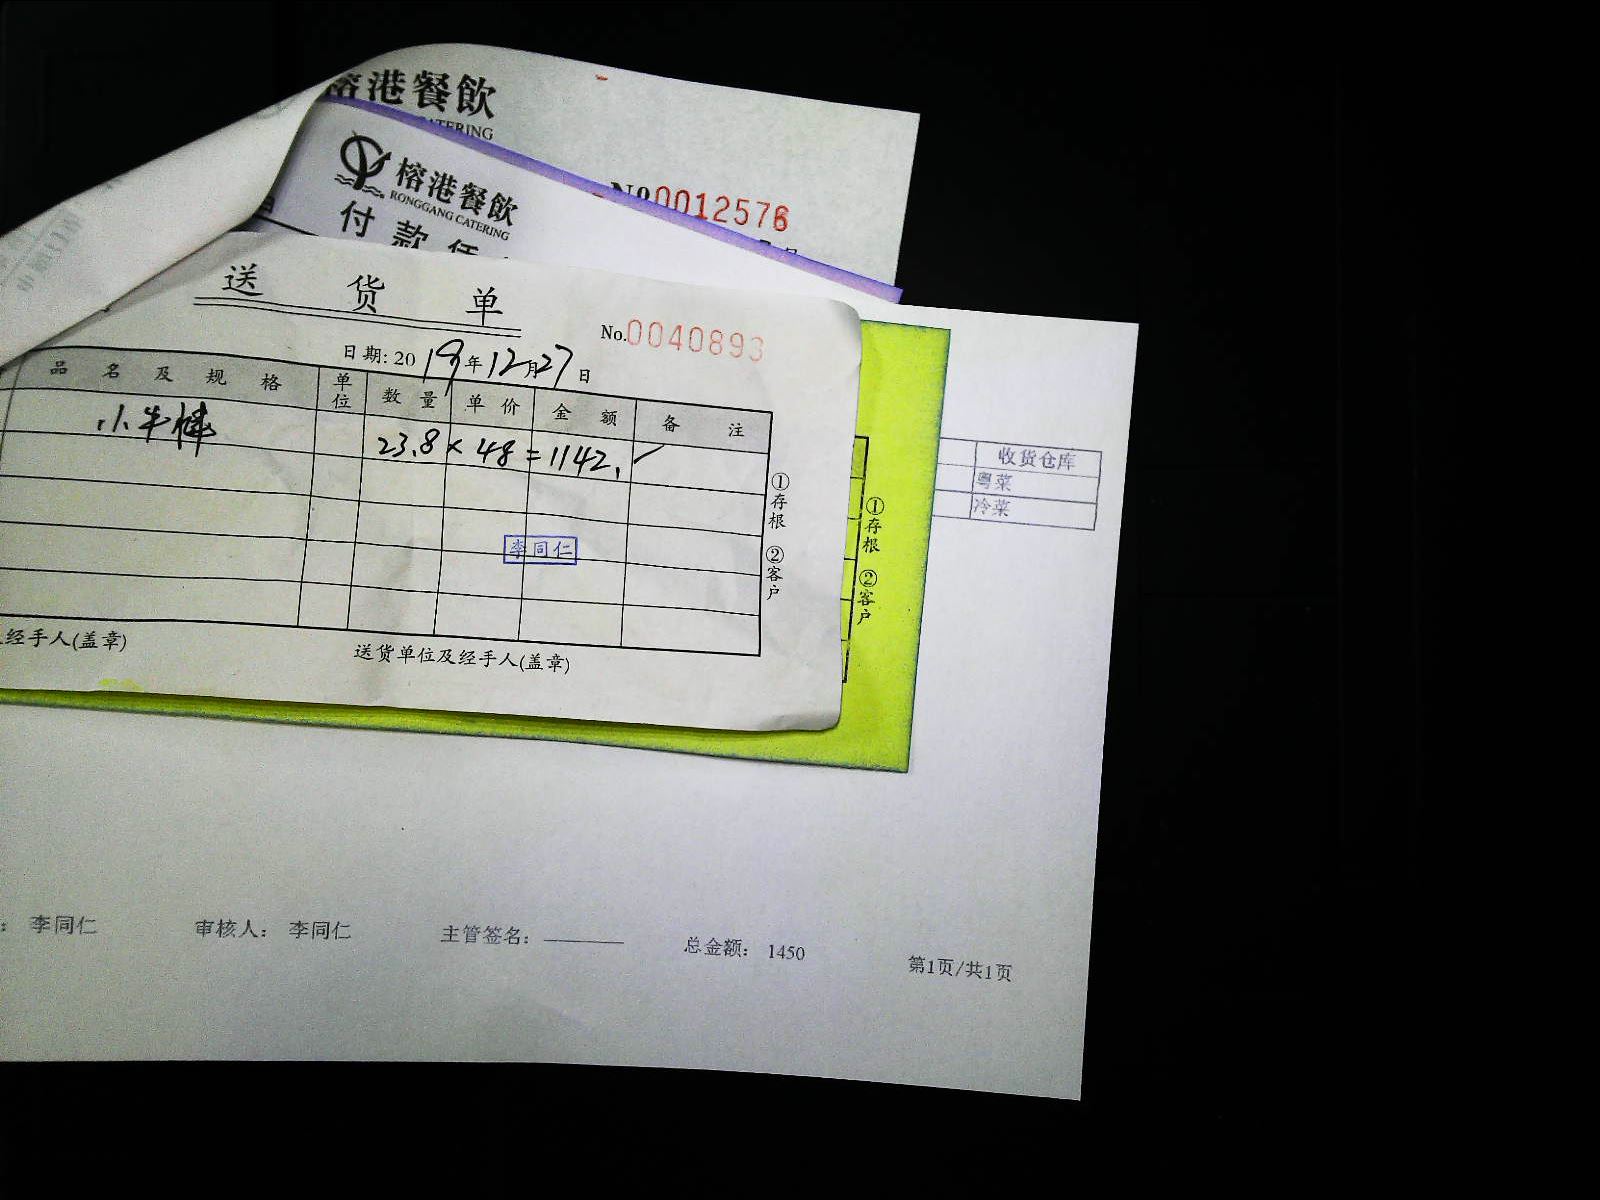 榕港餐飲
CATERING
No 0012576
榕港餐飲
RONGGANG CATERING
付款
送货单
No.0040893
日期:2019年12月27日
品名及规格 单位 数量 单价 金额 备注
小牛棒 23.8 × 48 = 1142.
李同仁
①存根 ②客户
经手人(盖章) 送货单位及经手人(盖章)
①存根 ②客户
收货仓库
粤菜
冷菜
李同仁 审核人: 李同仁 主管签名: 总金额: 1450 第1页/共1页